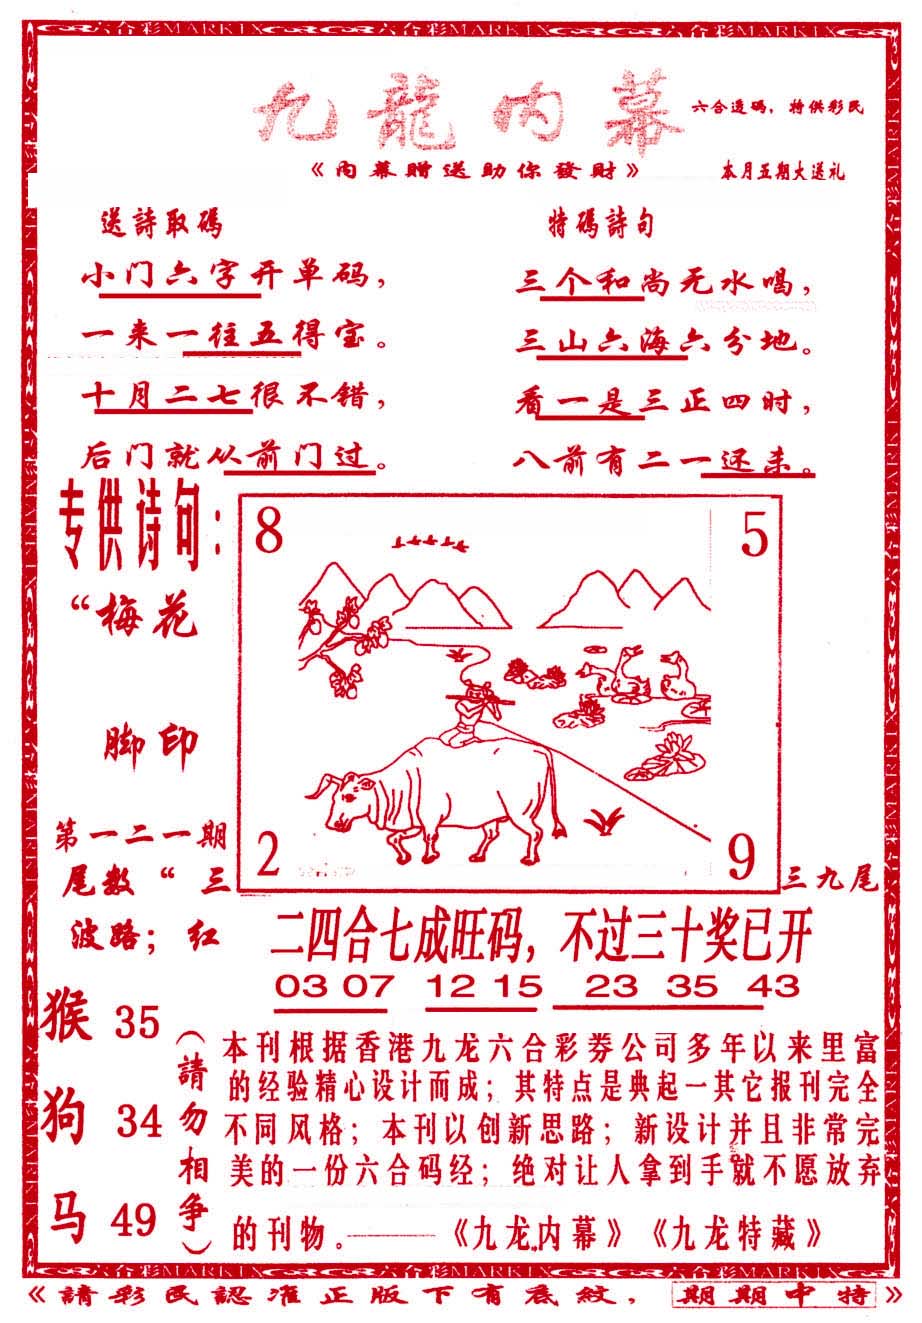 六合彩MARKIX 六合彩MARKIX 六合彩MARKIX
九龍内幕
六合透码，特供彩民
《内幕赠送助你發財》
本月五期大送礼
送詩取碼
小门六字开单码，
一来一往五得宝。
十月二七很不错，
后门就从前门过。
特碼詩句
三个和尚无水喝，
三山六海六分地。
看一是三正四时，
八前有二一还未。
专供诗句：
“梅花
脚印
8
5
2
9
第一二一期
尾数“三
三九尾
波路；红
二四合七成旺码，不过三十奖已开
03 07 12 15 23 35 43
猴 35
狗 34
马 49
（請勿相争）
本刊根据香港九龙六合彩劵公司多年以来里富
的经验精心设计而成；其特点是典起一其它报刊完全
不同风格；本刊以创新思路；新设计并且非常完
美的一份六合码经；绝对让人拿到手就不愿放弃
的刊物。———《九龙内幕》《九龙特藏》
六合彩MARKIX 六合彩MARKIX 六合彩MARKIX
《請彩民認准正版下有底紋，期期中特》